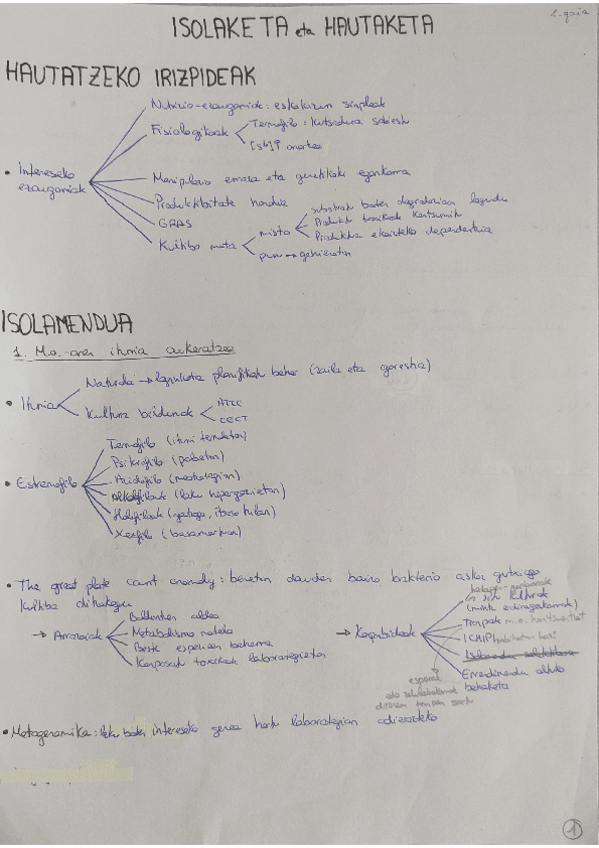 2. gaia
ISOLAKETA eta HAUTAKETA
HAUTATZEKO IRIZPIDEAK
• Intereseko ezaugarriak
Nutrizio-ezaugarriak: eskakizun sinpleak
Fisiologikoak
Termofilo: kutsadura saihestu
Manipulazio erraza eta genetikoki egonkorra
Produktibitate handia
GRAS
Kultibo mota
misto
substratu baten degradazioan lagundu
Produktu toxikoak kontsumitu
Produktua ekoizteko dependentzia
puru → gehienetan
ISOLAMENDUA
1. M.o.-aren iturria aukeratzea
• Iturria
Naturala → laginketa planifikatu behar (zaila eta garestia)
Kultura bildumak
ATCC
CECT
• Estremofilo
Termofilo (iturri termaletan)
Psikrofilo (poloetan)
Azidofilo (meategian)
Alkalofiloak (laku hipergazietan)
Halofiloak (gatzaga, itsaso hilan)
Xerofilo (basamortuan)
• The great plate count anomaly: benetan dauden baino bakterio askoz gutxiago
kultiba ditzakegu
→ Arrazoiak
Baldintzen aldea
Metabolismo motela
Beste espezieen beharra
Konposatu toxikoak laborategietan
→ Konponbideak
In situ kulturak
Tranpak
ICHIP
Erredinendu
behaketa
• Metagenomika: leku baten intereseko genea hartu laborategian adierazteko
1